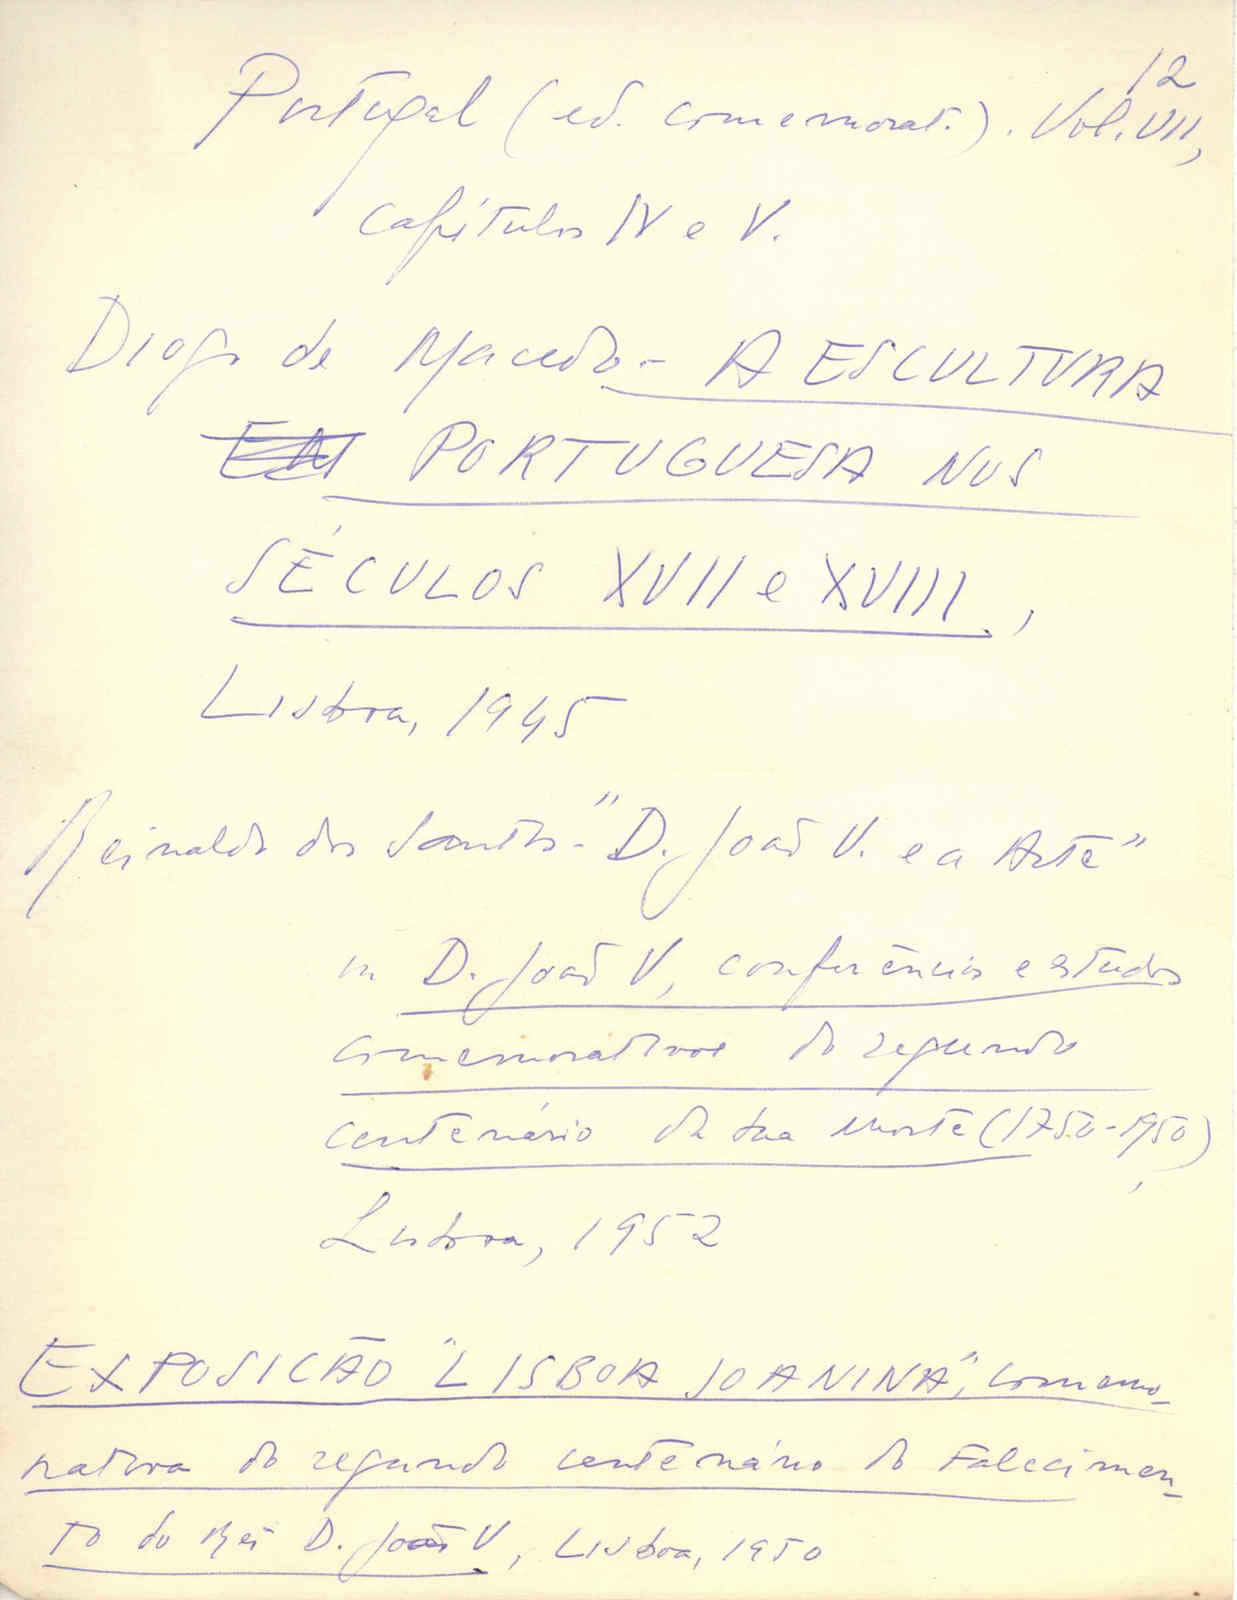 12
Portugal (ed. comemorat.). Vol. VII,
capítulos IV e V.
Diogo de Macedo - A ESCULTURA
PORTUGUESA NOS
SÉCULOS XVII e XVIII,
Lisboa, 1945
Reinaldo dos Santos - "D. João V. e a Arte"
in D. João V, conferências e estudos
comemorativos do segundo
centenário da sua morte (1750-1950),
Lisboa, 1952
EXPOSICÃO "LISBOA JOANINA", comemo-
rativa do segundo centenário do Falecimen-
to do Rei D. João V, Lisboa, 1950